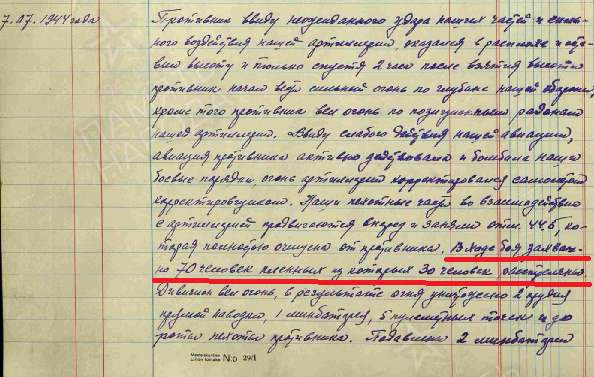 7.07.1944 года Противник ввиду неожиданного удара наших частей и сильно-
ного воздействия нашей артиллерии, оказался в расплохе и оста-
вил высоту и только спустя 2 часа после взятия высоты
противник начал вести сильный огонь по глубине нашей обороны,
кроме того противник вел огонь по позиционным районам
нашей артиллерии. Ввиду слабого действия нашей авиации,
авиация противника активно действовала и бомбила наши
боевые порядки, огонь артиллерии корректировался самолетом
корректировщиком. Наши пехотные части во взаимодействии
с артиллерией продвигаются вперед и заняли отм. 44.6, ко-
торая полностью очищена от противника. В ходе боя захваче-
но 70 человек пленных из которых 30 человек расстреляны.
Дивизион вел огонь, в результате огня уничтожено 2 орудия
прямой наводки, 1 минбатарея, 5 пулеметных точек и до
роты пехоты противника. Подавлено 2 минбатареи
N:o 29/1